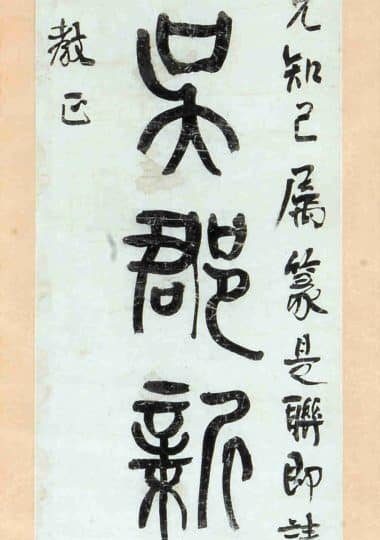 兄知己属篆是聯即請
吳郡新
教正